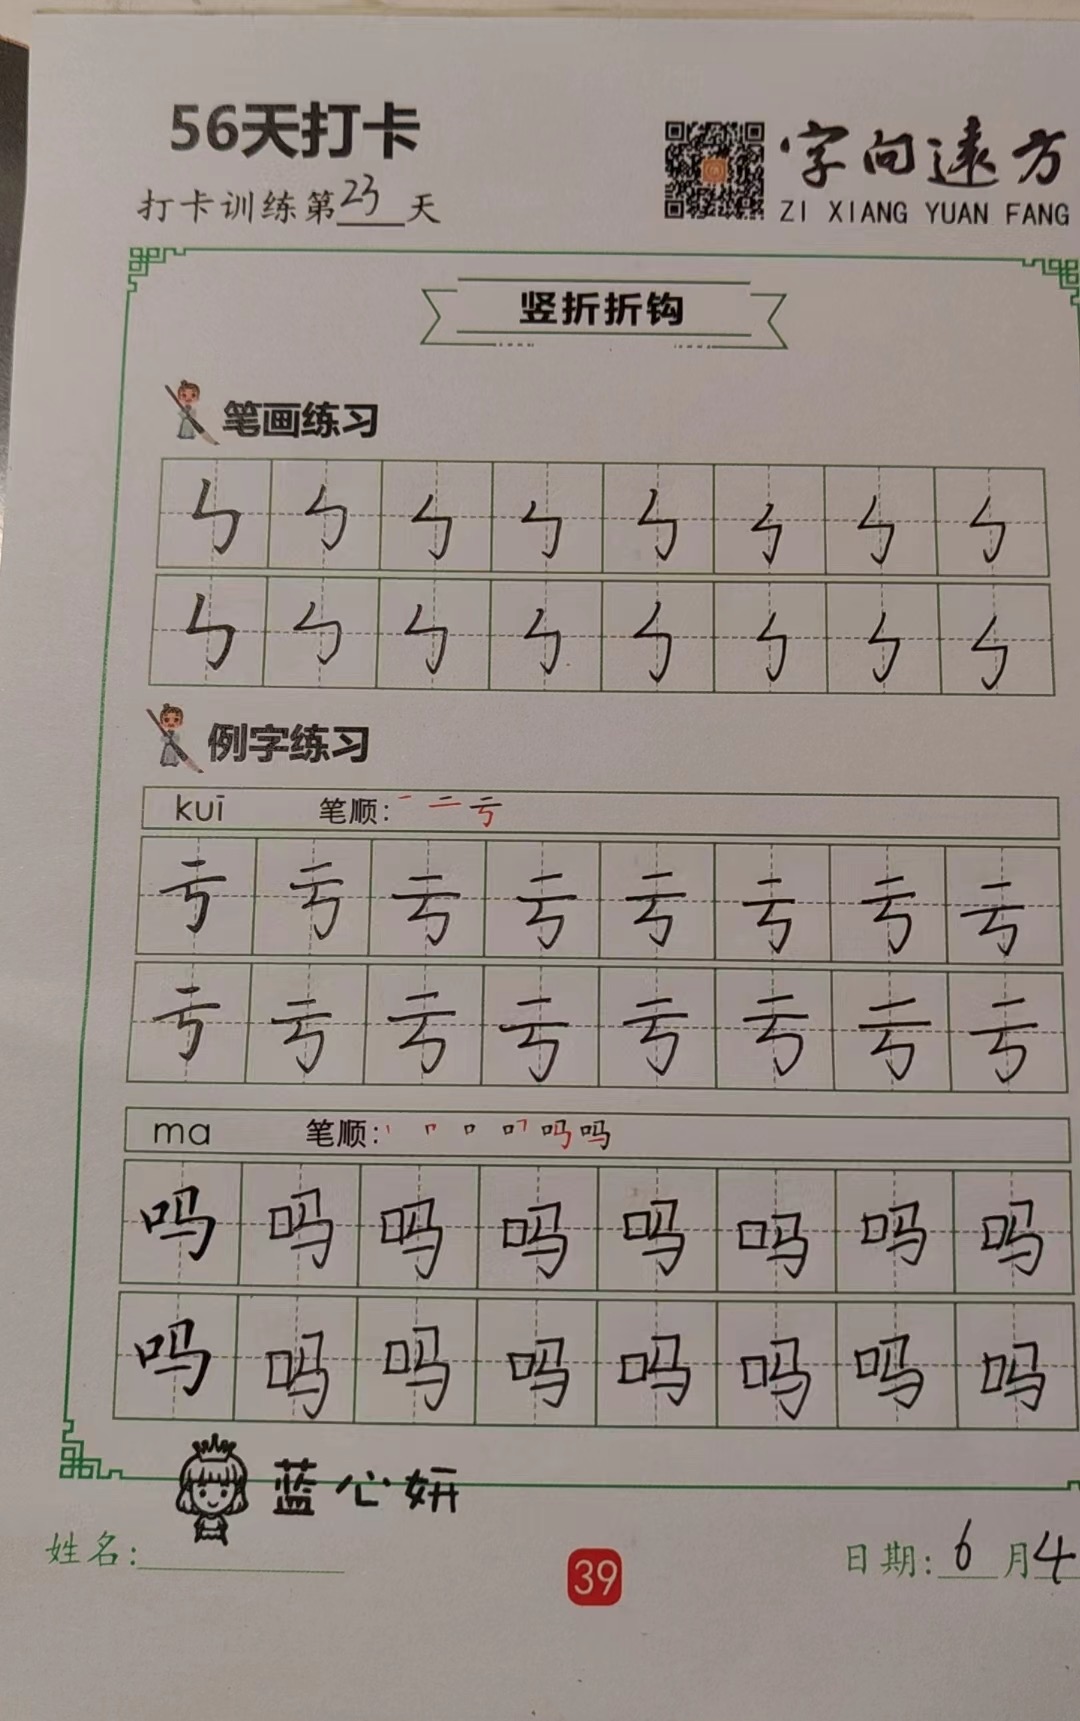 56天打卡
字向远方
打卡训练第23天
ZI XIANG YUAN FANG
竖折折钩
笔画练习
ㄣ ㄣ ㄣ ㄣ ㄣ ㄣ ㄣ ㄣ
ㄣ ㄣ ㄣ ㄣ ㄣ ㄣ ㄣ ㄣ
例字练习
kuī 笔顺: 一 二 亏
亏 亏 亏 亏 亏 亏 亏 亏
亏 亏 亏 亏 亏 亏 亏 亏
ma 笔顺: 丨 冂 口 叮 吗 吗
吗 吗 吗 吗 吗 吗 吗 吗
吗 吗 吗 吗 吗 吗 吗 吗
蓝心妍
姓名:
39
日期: 6月4